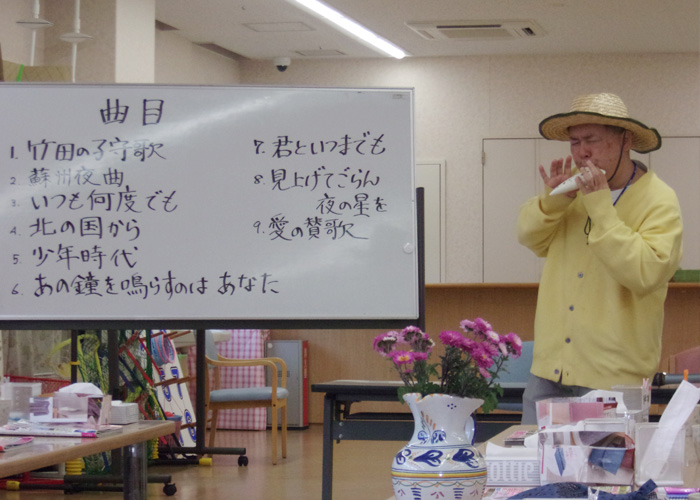 曲目
1. 竹田の子守歌
2 蘇州夜曲
3. いつも何度でも
4 北の国から
5 少年時代
6 あの鐘を鳴らすのは あなた
7. 君といつまでも
8 見上げてごらん
夜の星を
9. 愛の賛歌